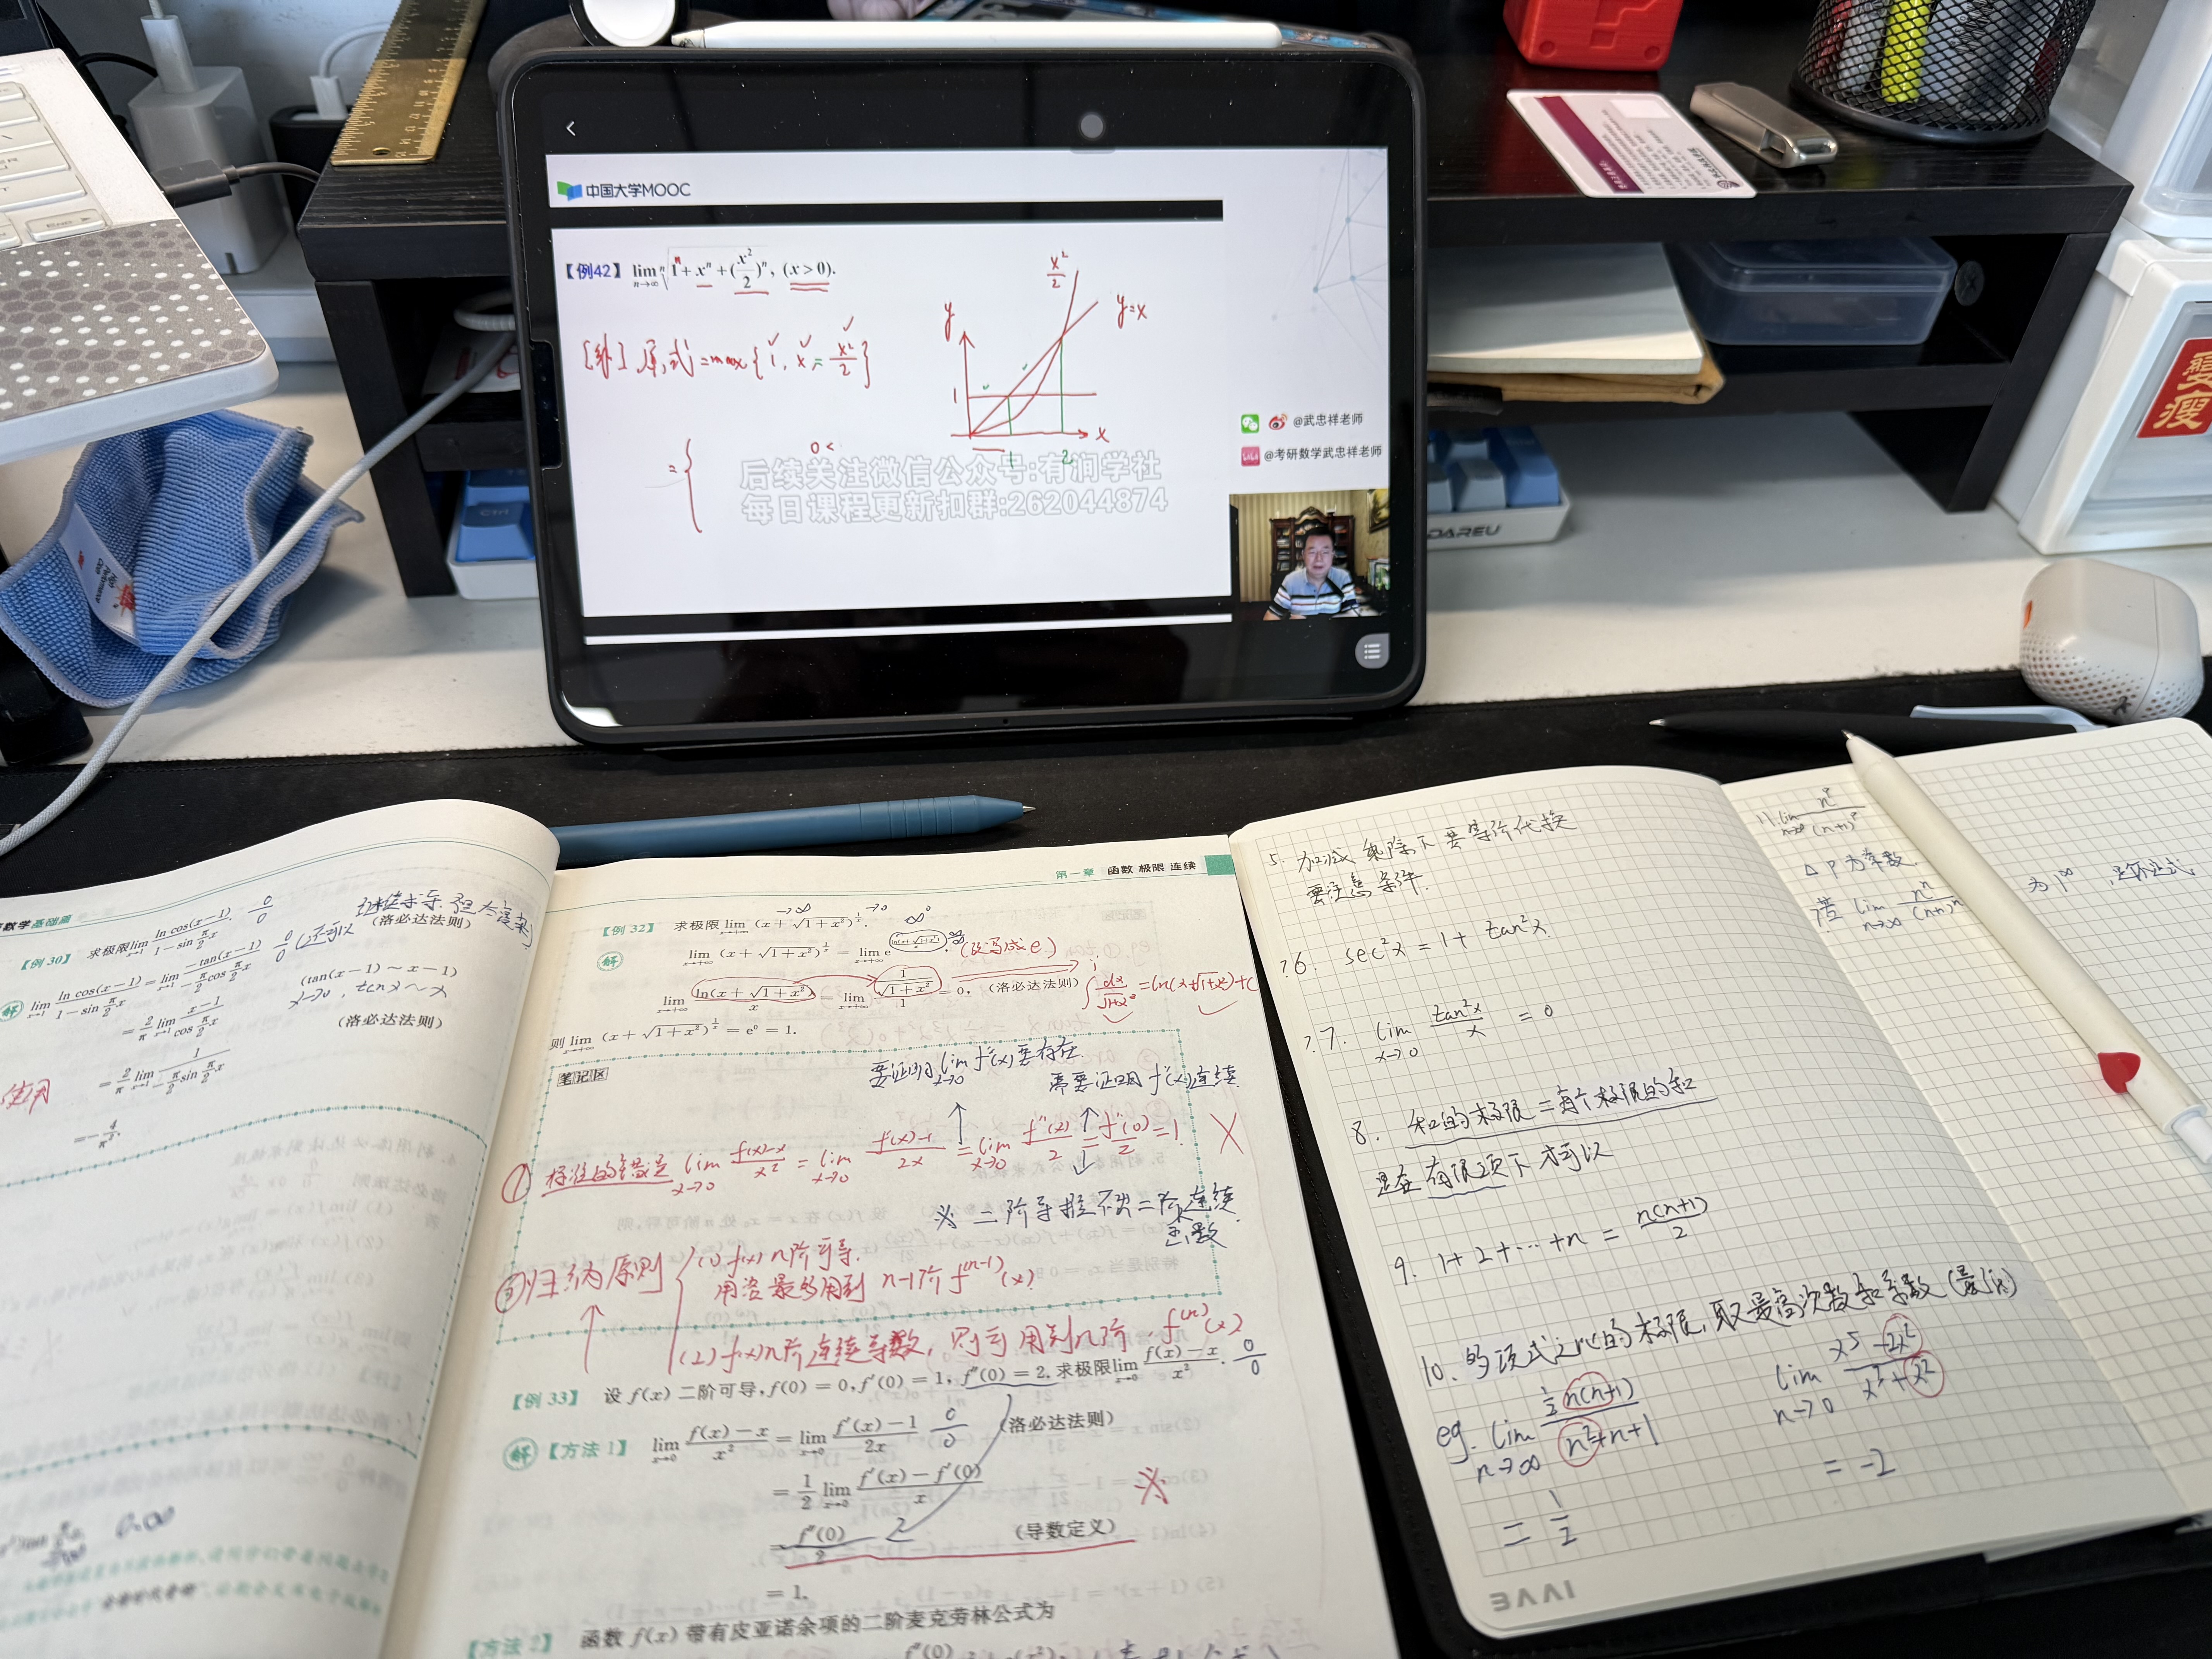 中国大学MOOC
【例42】 lim n→∞ ⁿ√(1ⁿ + xⁿ + (x²/2)ⁿ), (x > 0).
[解] 原式 = max { 1, x, x²/2 }
= {
0 <
x²/2
y = x
y
1
x
1 2
@武忠祥老师
@考研数学武忠祥老师
后续关注微信公众号:有润学社
每日课程更新扣群:262044874
DAREU
Ctrl
变瘦
数学基础篇
继续求导,
【例 30】 求极限 lim x→1 ln cos(x−1) / (1 − sin π/2 x). 0/0
(洛必达法则)
解 lim x→1 ln cos(x−1) / (1 − sin π/2 x) = lim x→1 −tan(x−1) / (−π/2 cos π/2 x) 0/0 (还可以
(tan(x−1) ~ x−1)
x→0, tanx ~ x
= 2/π lim x→1 (x−1) / (cos π/2 x)
(洛必达法则)
= 2/π lim x→1 1 / (−π/2 sin π/2 x)
= −4/π².
使用
第一章 函数 极限 连续
→∞ →0 ∞⁰
【例 32】 求极限 lim x→+∞ (x + √(1+x²))^(1/x).
解 lim x→+∞ (x + √(1+x²))^(1/x) = lim x→+∞ e^(ln(x+√(1+x²))/x) ∞/∞ (改写成e)
lim x→+∞ ln(x + √(1+x²)) / x = lim x→+∞ (1/√(1+x²)) / 1 = 0, (洛必达法则) ∫ dx/√(1+x²) = ln(x+√(1+x²))+C
则 lim x→+∞ (x + √(1+x²))^(1/x) = e⁰ = 1.
笔记区
要证明 lim x→0 f''(x) 要存在.
需要证明 f''(x) 连续.
① 标准的错误是 lim x→0 (f(x)−x)/x² = lim x→0 (f'(x)−1)/2x = lim x→0 f''(x)/2 = f''(0)/2 = 1. ×
※ 二阶导推不出二阶连续
函数
② 归纳原则 { (1) f(x) n阶可导.
用洛最多用到 n−1阶 f^(n−1)(x)
(2) f(x) n阶连续导数, 则可用到n阶. f^(n)(x)
【例 33】 设 f(x) 二阶可导, f(0) = 0, f'(0) = 1, f''(0) = 2. 求极限 lim x→0 (f(x) − x)/x². 0/0
解 【方法 1】 lim x→0 (f(x) − x)/x² = lim x→0 (f'(x) − 1)/2x 0/0 (洛必达法则)
= 1/2 lim x→0 (f'(x) − f'(0))/x ※
= f''(0)/2 2 (导数定义)
= 1.
【方法 2】 函数 f(x) 带有皮亚诺余项的二阶麦克劳林公式为
5. 加减乘除下要等价代换
要注意条件.
?6. sec²x = 1 + tan²x
?7. lim x→0 tan²x / x = 0
8. 和的极限 = 每个极限的和
是在有限项下才可以
9. 1+2+⋯+n = n(n+1)/2
10. 多项式之比的极限, 取最高次数和系数
eg. lim n→∞ ½n(n+1) / (n²+n+1)
= 1/2
lim n→0 (x⁵ − 2x²) / (x³ + x²)
= −2
IVVE
11. lim n→∞ n^p / (n+1)^p
△ P为常数.
若 lim n→∞ nⁿ / (n+1)ⁿ
为 1^∞, 是不定式